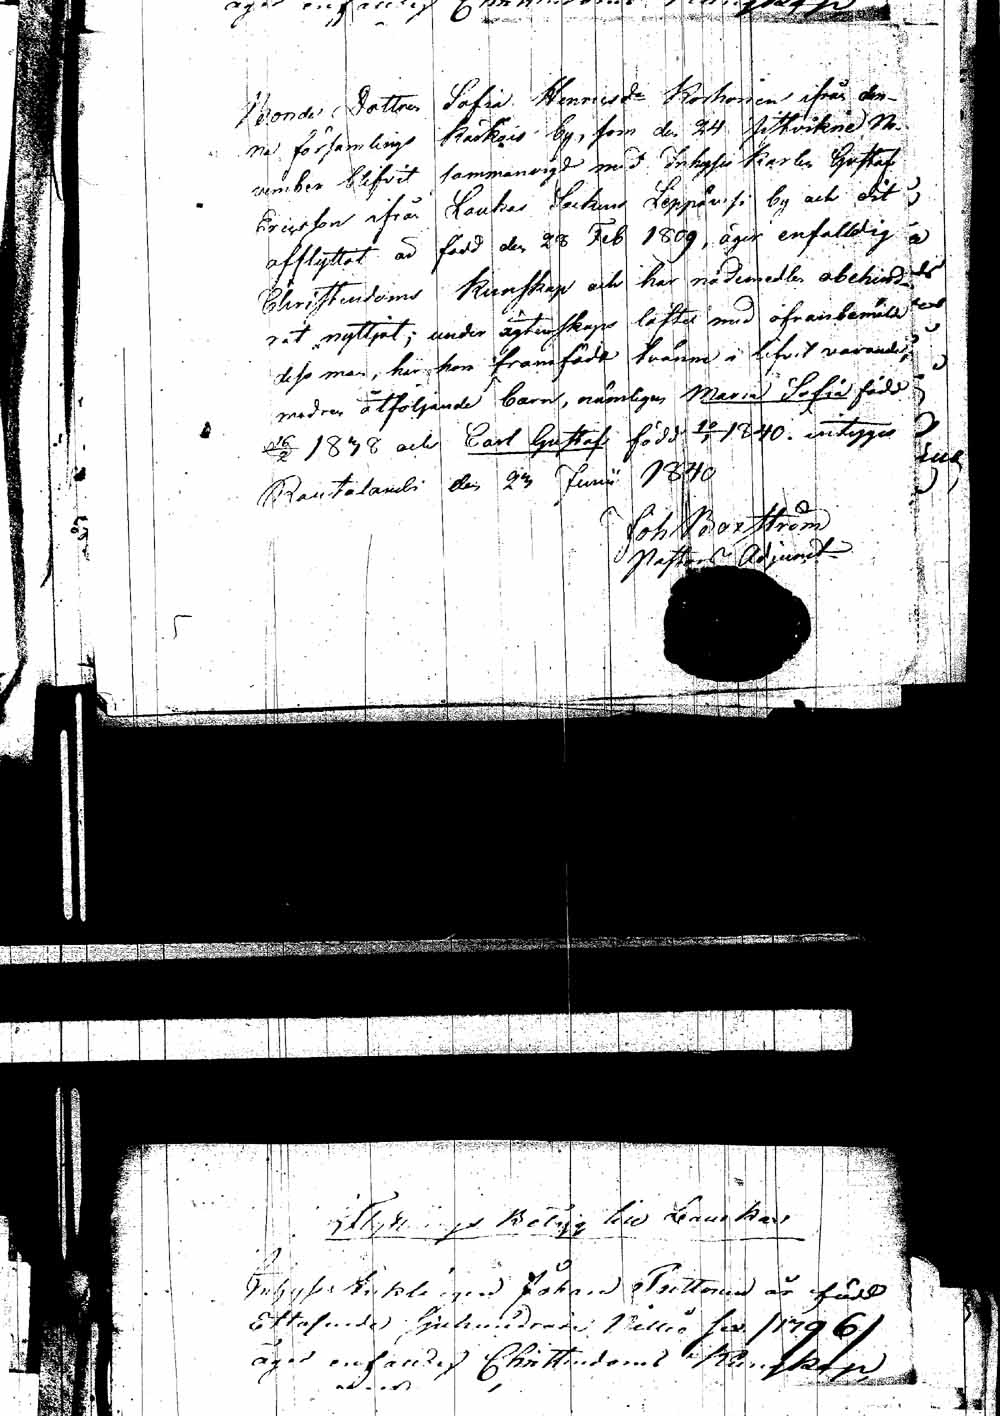 äger enfaldig Christendoms Kunskap
Bonde Dottren Sofia Henricsdr Korhonen ifrån den-
na församlings Kärkäis by, som den 24 No-
vember blifvit sammanvigd med Inhyses Karlen Gustaf
Ericsson ifrån Laukas Sockens Leppävesi by och dit
afflyttat är född den 28 Feb 1809, äger enfalldig
Christendoms Kunskap och har nådemedlen obehind-
rat nyttjat; under ägtenskaps löftet med ofvanbemälde
dess man, har hon framfödt tvänne i lifvet varande,
modren åtföljande barn, nämligen Maria Sofia född
26/2 1838 och Carl Gustaf född 10/1 1840. intygas
Rautalambi den 23 Junii 1840
Joh Boxström
Pastors Adjunct
Flyttnings Betyg till Laukas
Inhyses Enklingen Johan Tuttunen är född
Ettusende Sjuhundrade Nittio sex /1796/
äger enfaldig Christendoms Kunskap,